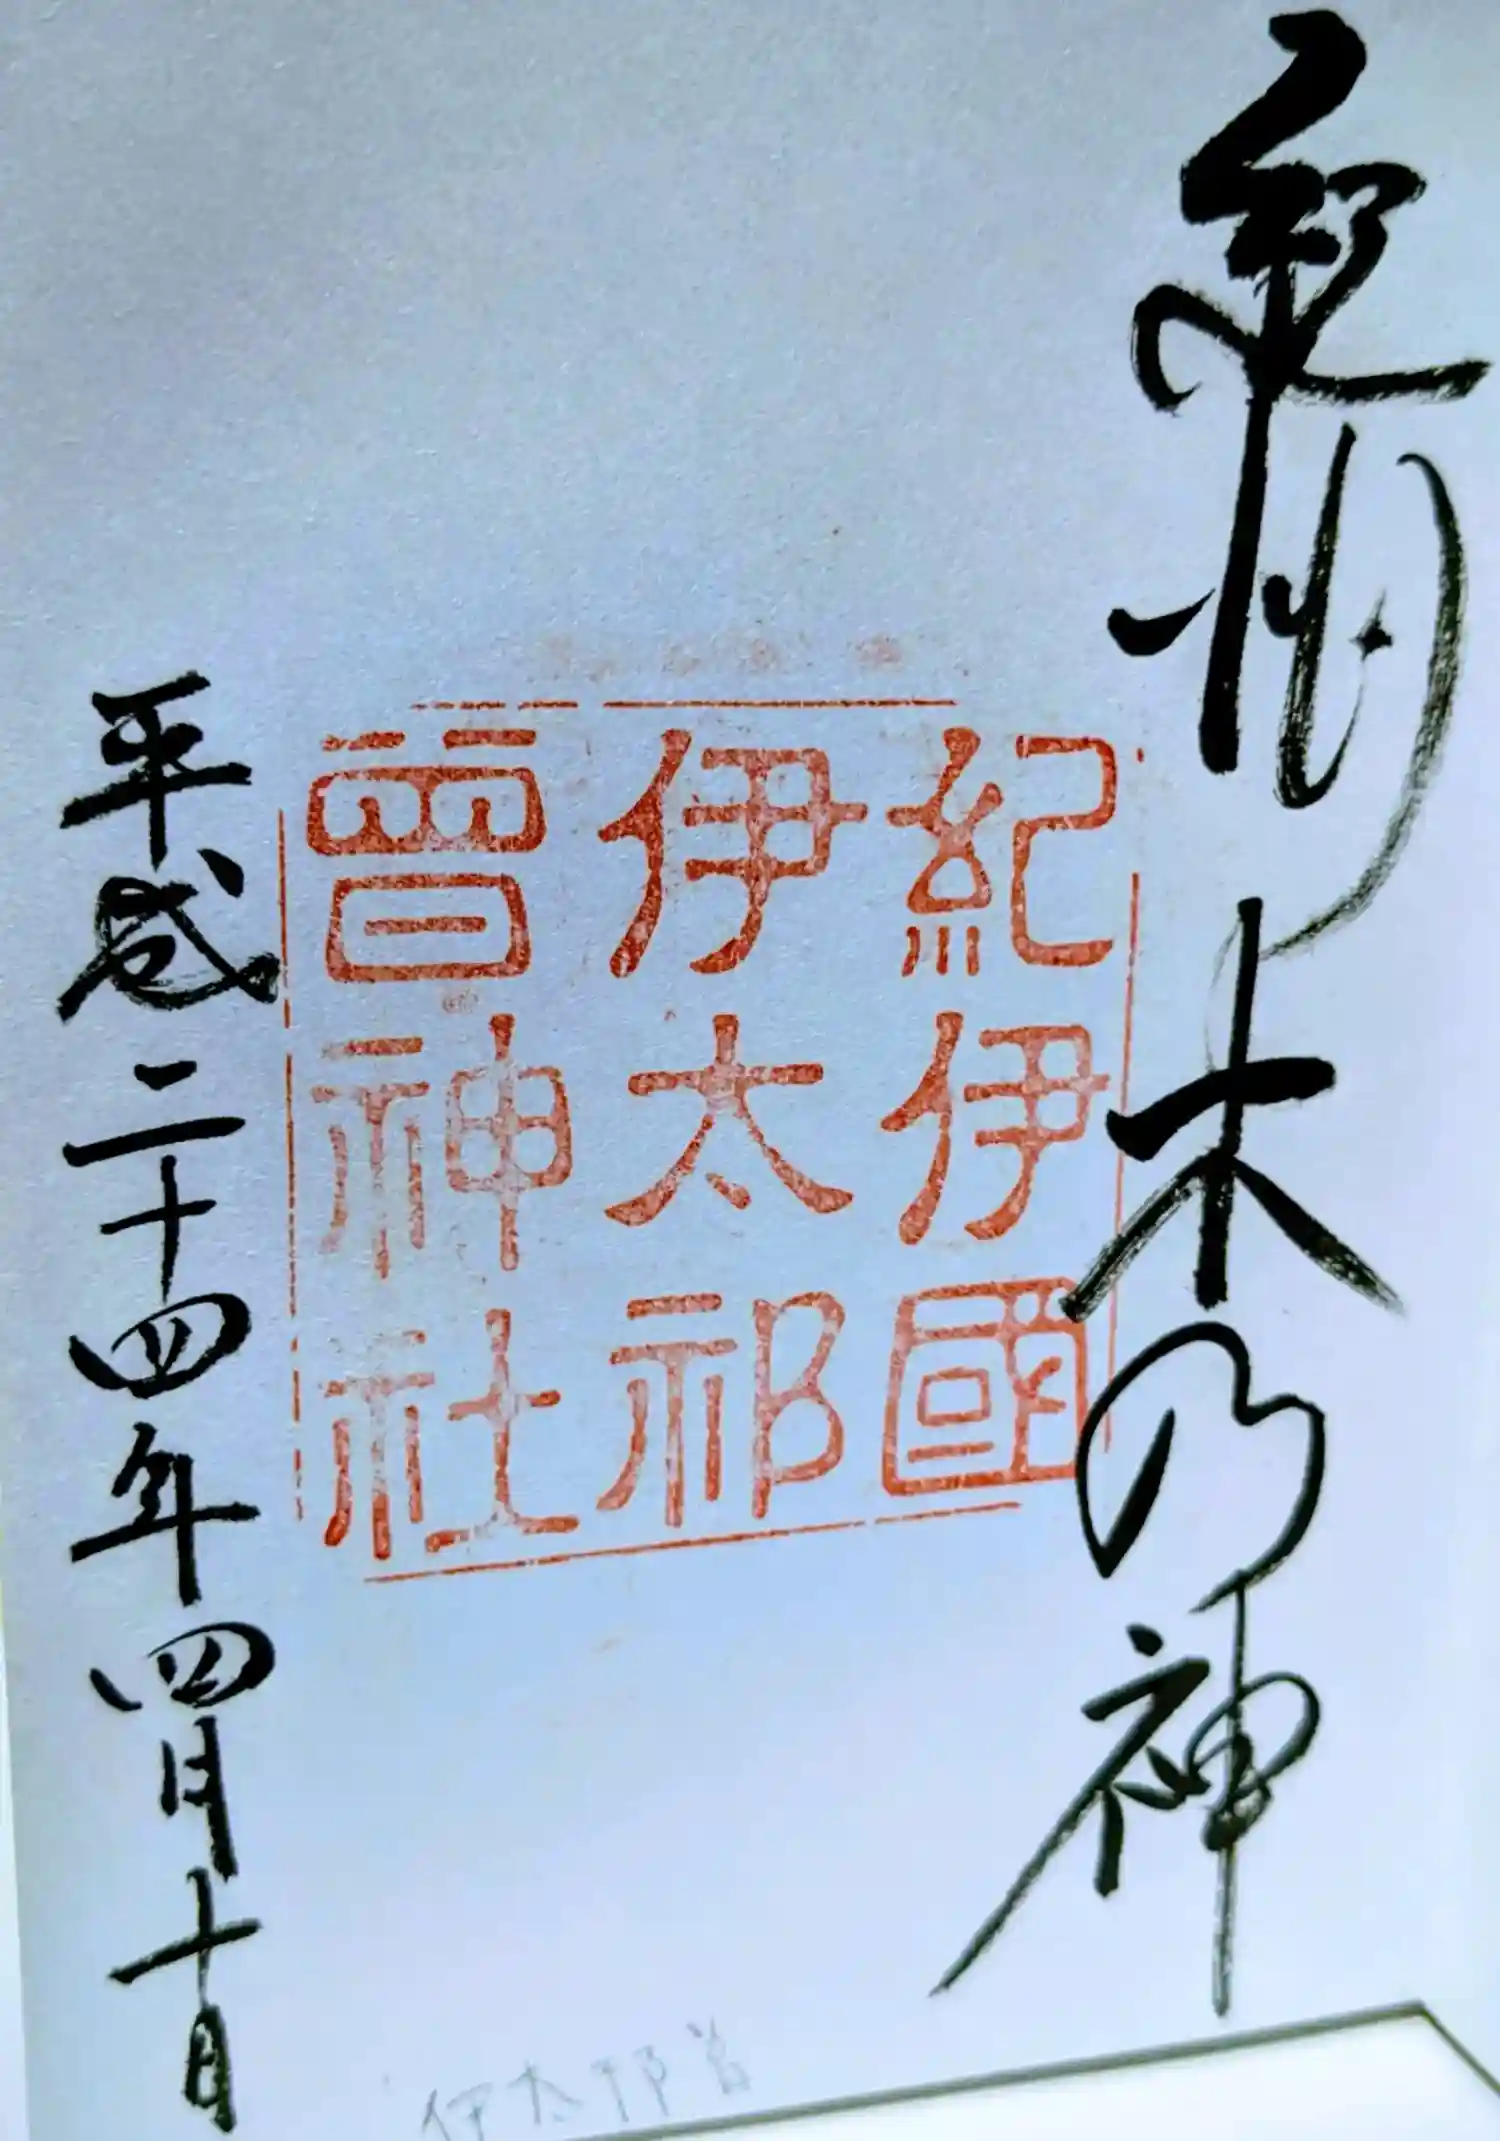 紀州木の神
紀伊國
伊太祁
曽神社
平成二十四年四月十日
伊太祁曽